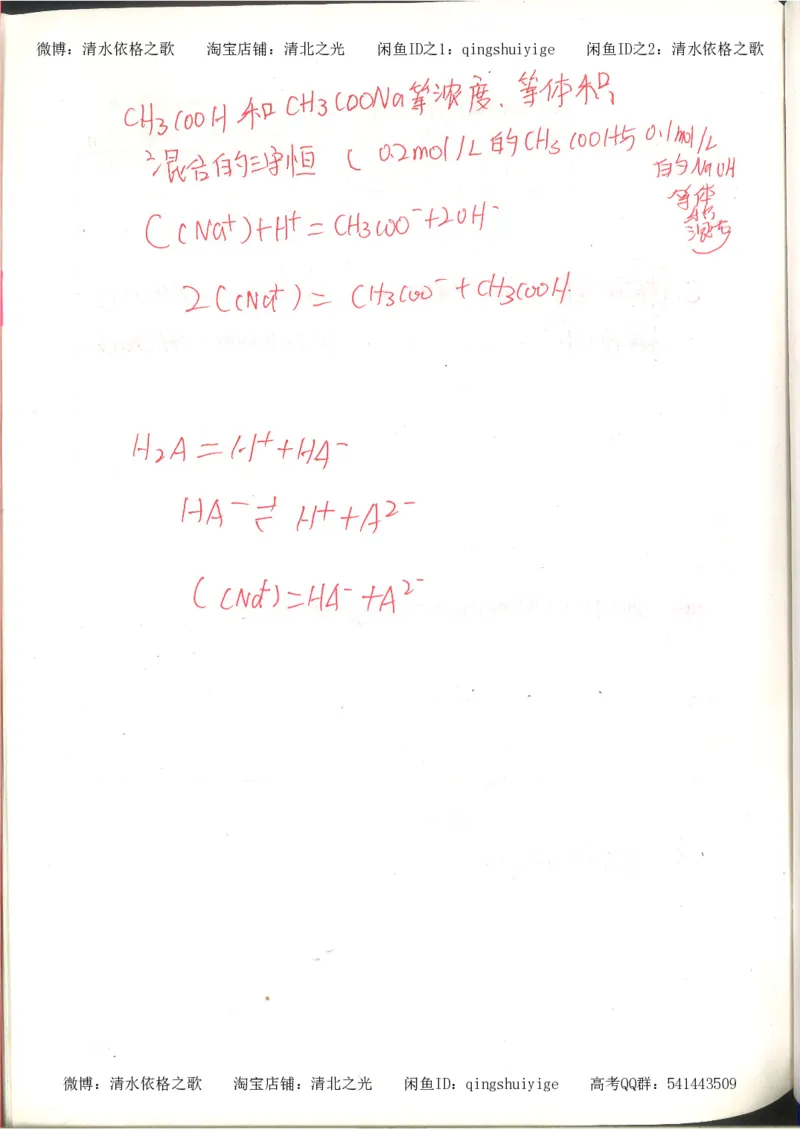 微博：清水依格之歌 淘宝店铺：清北之光 闲鱼ID之1：qingshuiyige 闲鱼ID之2：清水依格之歌
CH3COOH和CH3COONa等浓度、等体积
混合的三守恒（0.2mol/L的CH3COOH与0.1mol/L
的NaOH
等体
积
混合）
C(Na+)+H+=CH3COO-+2OH-
2C(Na+)=CH3COO-+CH3COOH.
H2A=H++HA-
HA-⇌H++A2-
C(Na+)=HA-+A2-
微博：清水依格之歌 淘宝店铺：清北之光 闲鱼ID：qingshuiyige 高考QQ群：541443509